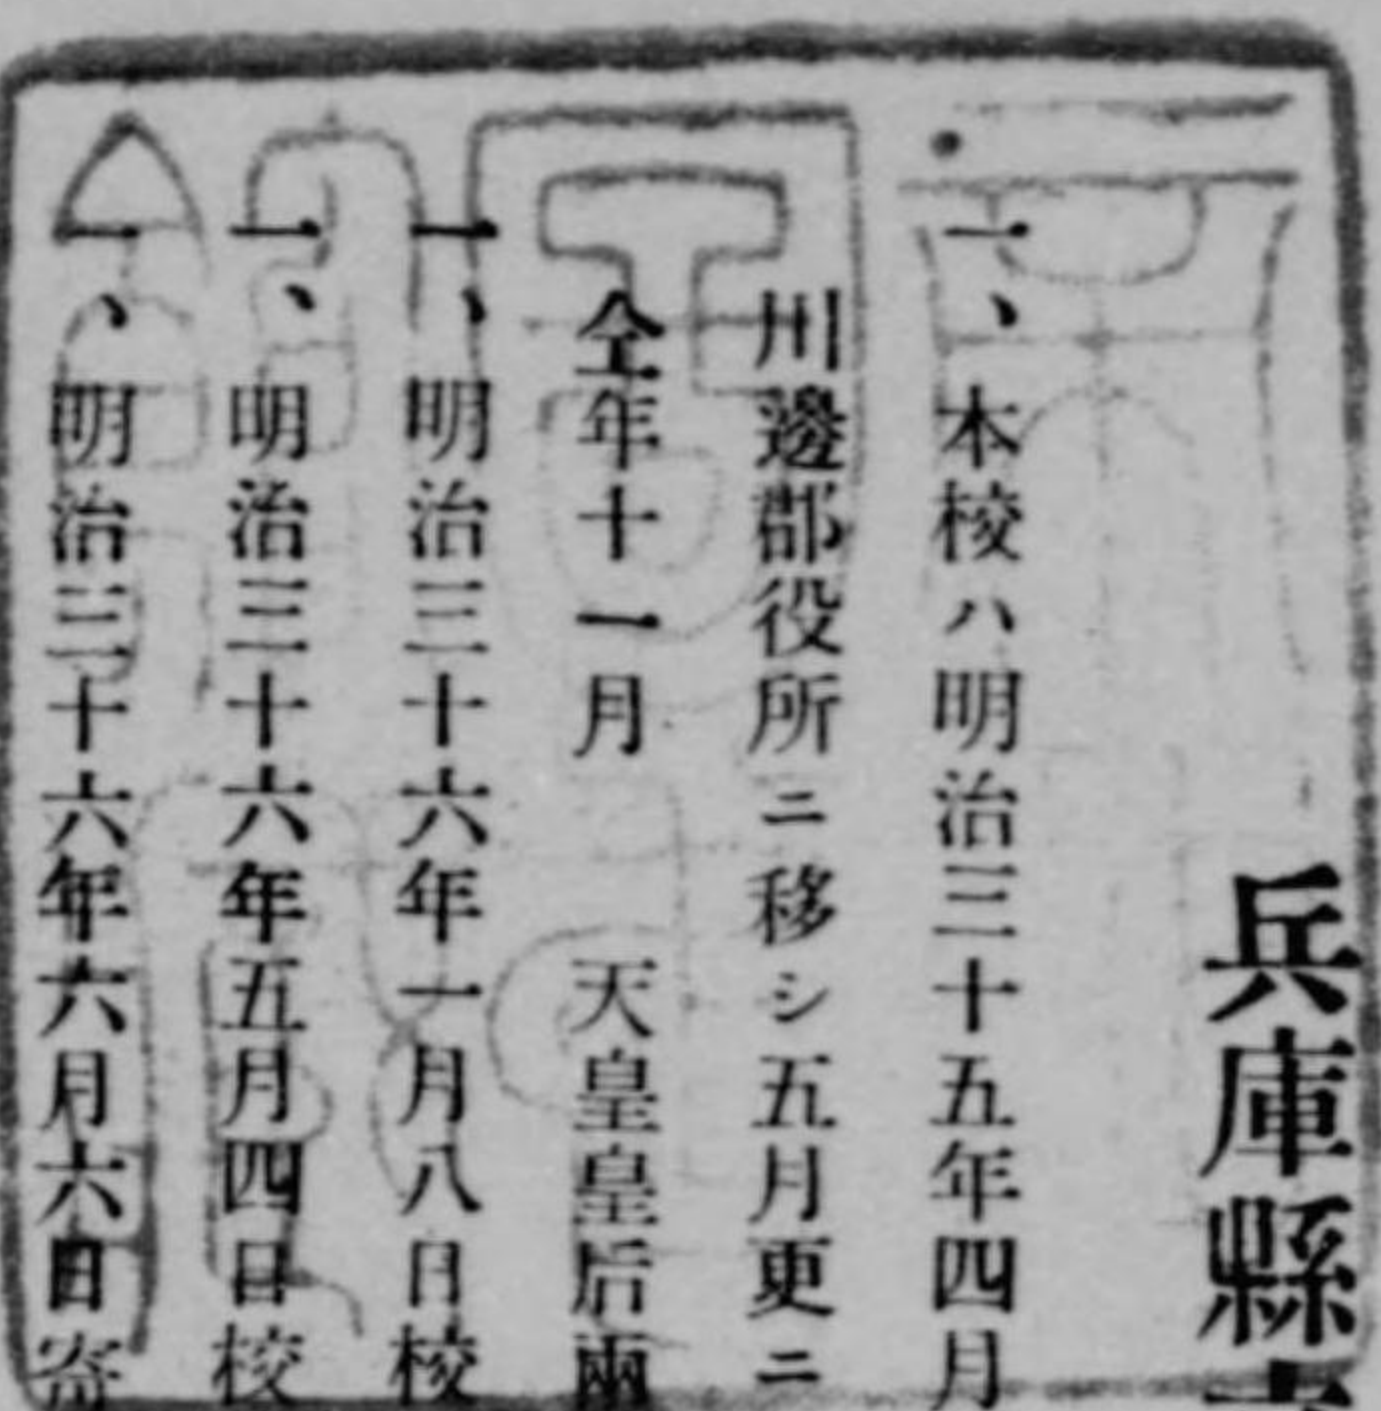 兵庫縣
一、本校ハ明治三十五年四月
川邊郡役所ニ移シ五月更ニ
仝年十一月　天皇皇后兩
一、明治三十六年一月八日校
一、明治三十六年五月四日校
一、明治三十六年六月六日寄